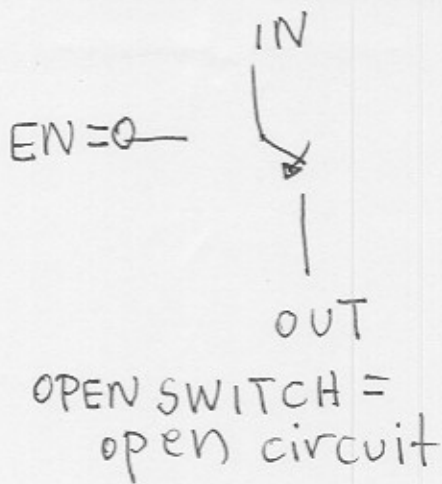 IN
EN=0
OUT
OPEN SWITCH =
open circuit